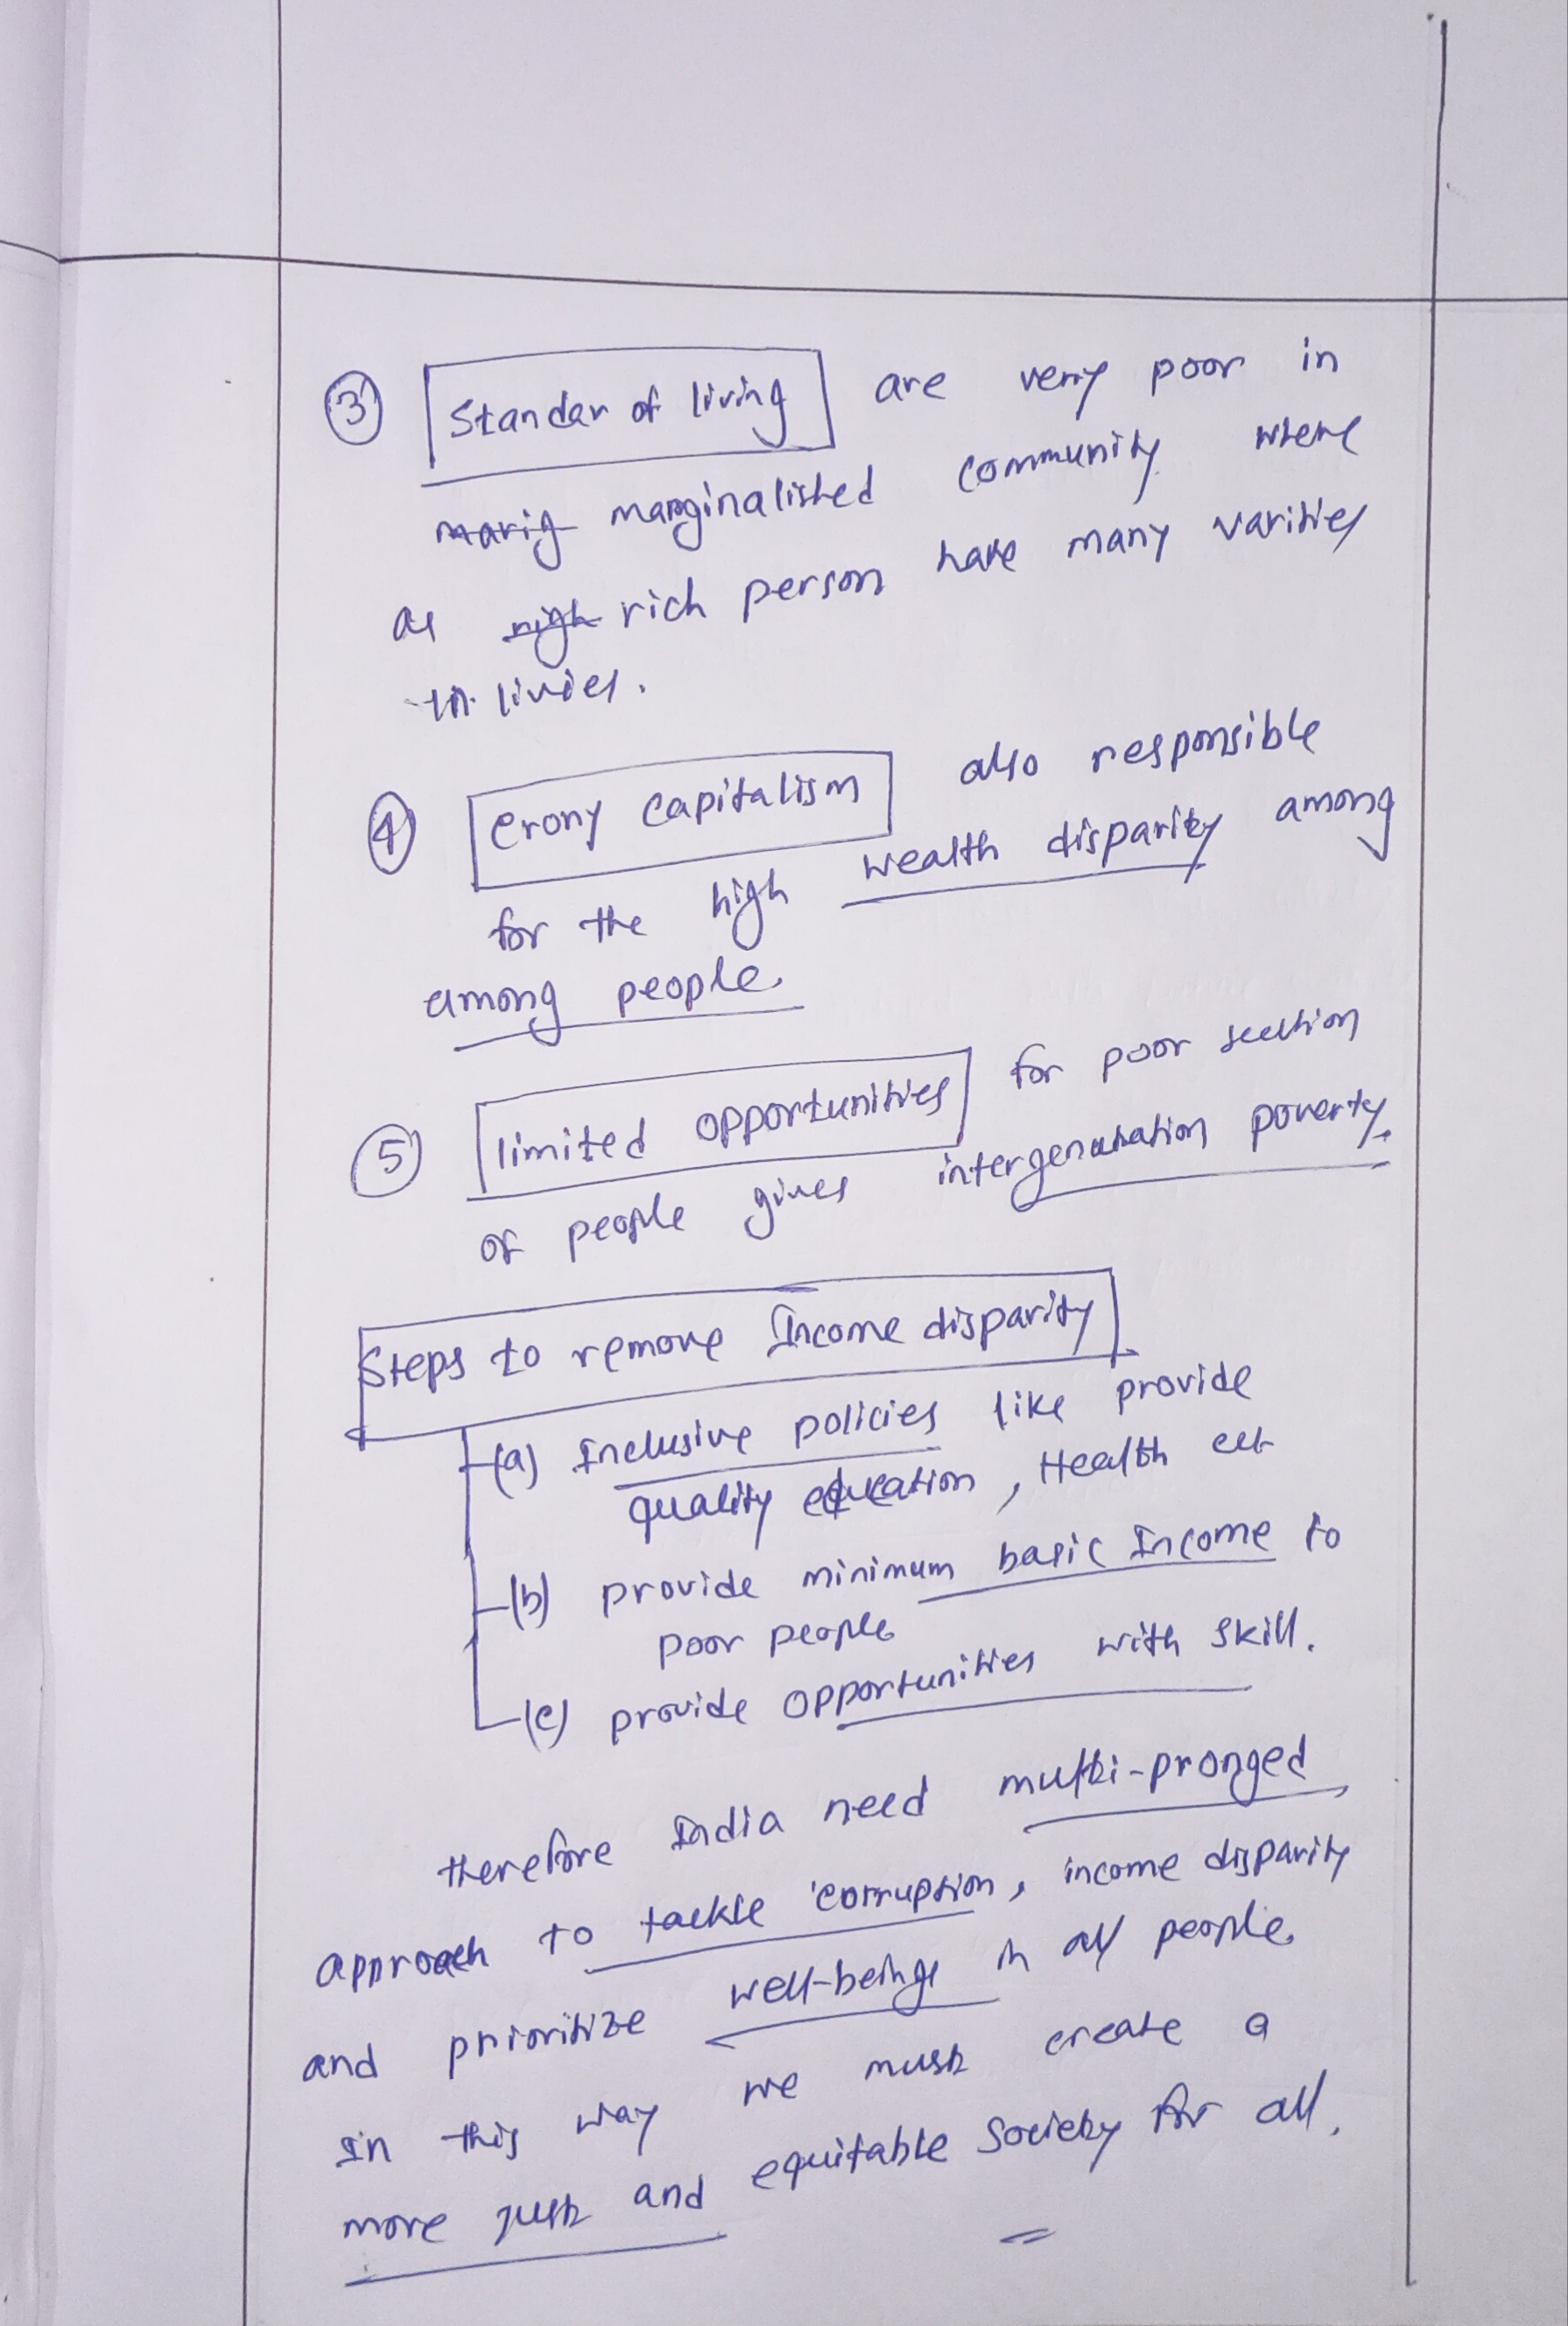 ③ Standar of living are very poor in
marig marginalished community where
as righ rich person have many varities
in livies.
④ crony capitalism also responsible
for the high wealth disparity among
among people
⑤ limited opportunities for poor section
of people gives intergenaration poverty.
Steps to remove Income disparity
(a) Inclusive policies like provide
quality education, Health ect
(b) provide minimum basic Income to
poor people
(c) provide opportunities with skill.
therefore India need multi-pronged
approach to tackle corruption, income disparity
and prioritize well-beings in all people
In this way we must create a
more just and equitable society for all.